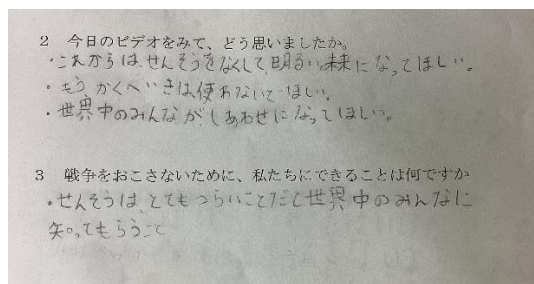 2 今日のビデオをみて、どう思いましたか。
・これからは、せんそうをなくして、明るい未来になってほしい。
・もう かくへいきは使わないでほしい。
・世界中のみんなが、しあわせになってほしい。
3 戦争をおこさないために、私たちにできることは何ですか
・せんそうは、とてもつらいことだと世界中のみんなに
知ってもらうこと